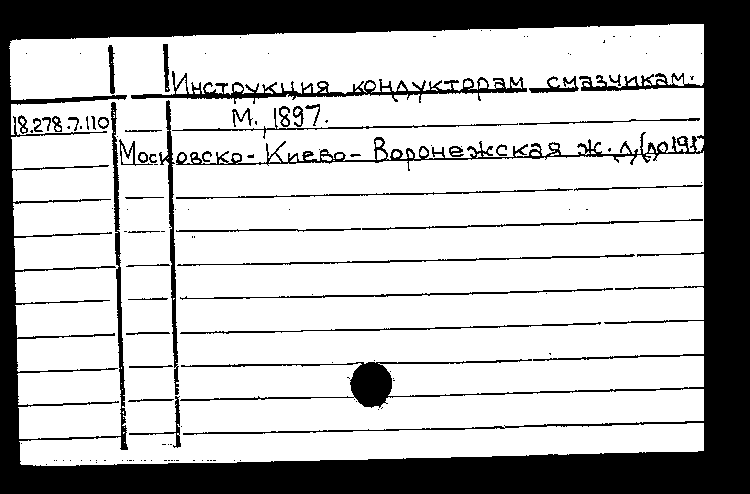 Инструкция кондукторам смазчикам.
18.278.7.110 М., 1897.
Московско-Киево-Воронежская ж.д. (до 1917